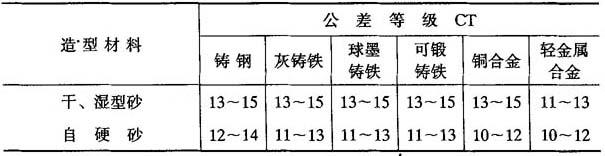 造型材料 公差等级 CT
铸钢 灰铸铁 球墨铸铁 可锻铸铁 铜合金 轻金属合金
干、湿型砂 13～15 13～15 13～15 13～15 13～15 11～13
自硬砂 12～14 11～13 11～13 11～13 10～12 10～12